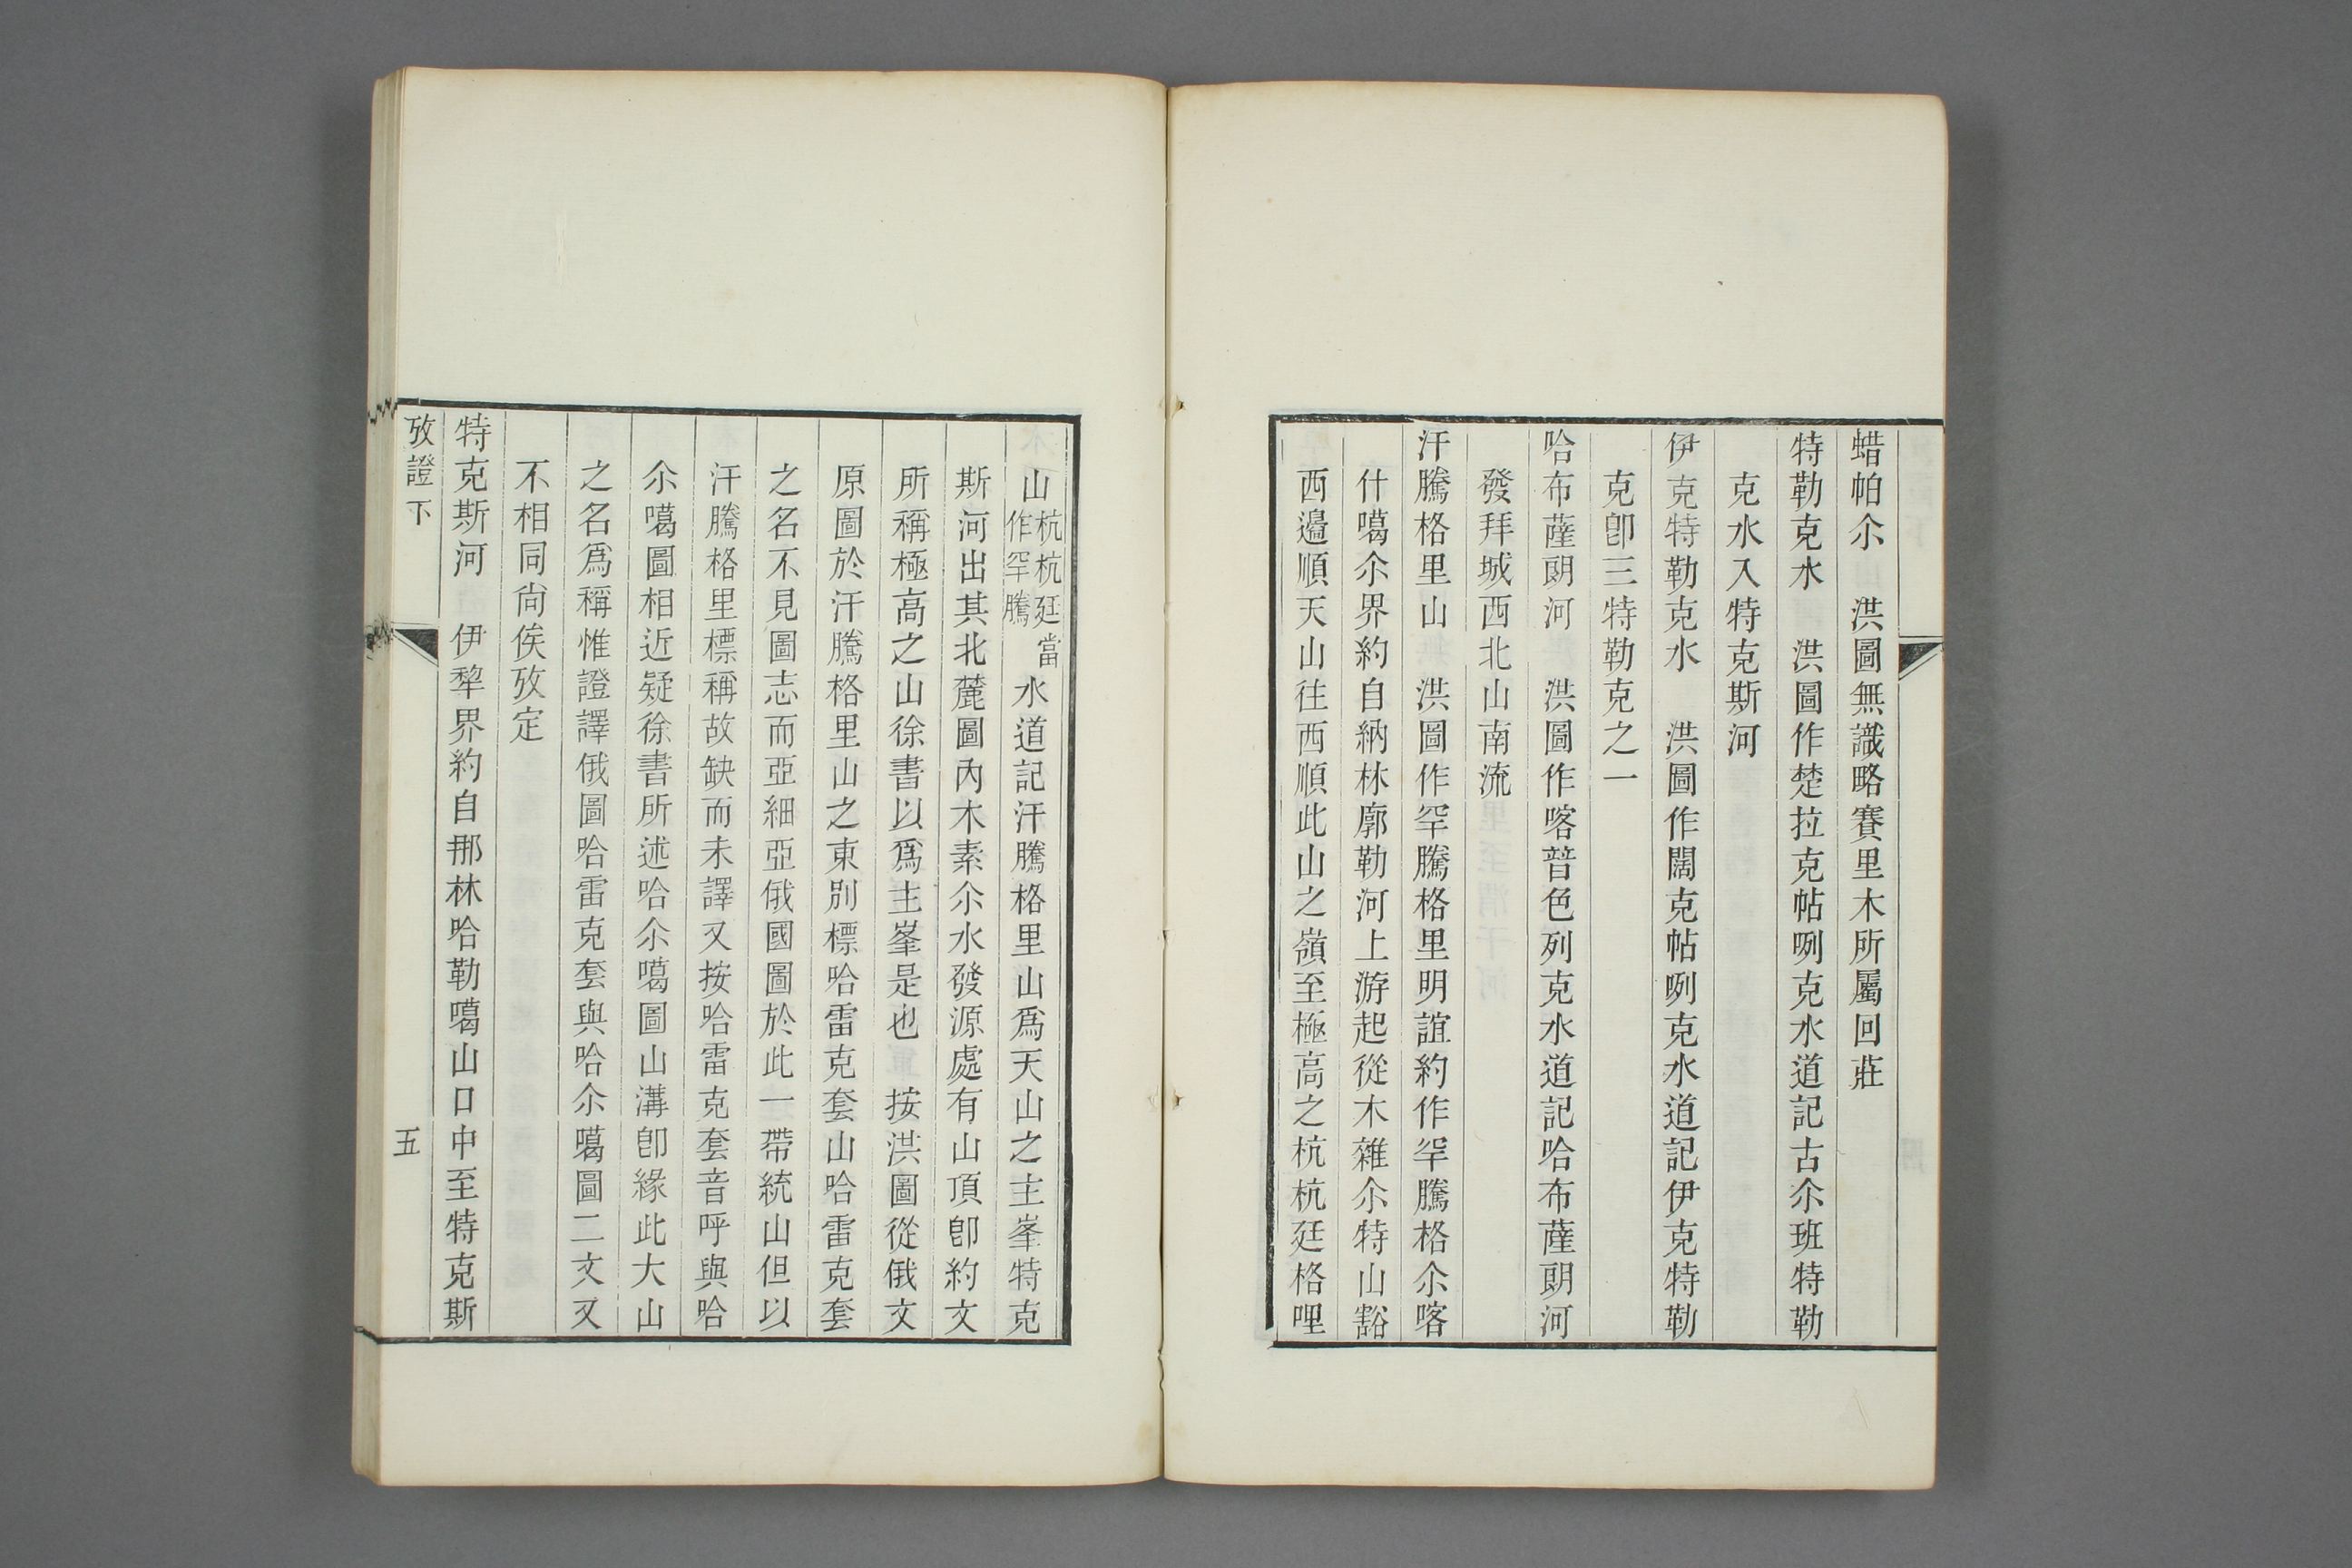 蜡帕尒　洪圖無識略賽里木所屬回莊
特勒克水　洪圖作楚拉克帖咧克水道記古尒班特勒
克水入特克斯河
伊克特勒克水　洪圖作闊克帖咧克水道記伊克特勒
克卽三特勒克之一
哈布薩朗河　洪圖作喀普色列克水道記哈布薩朗河
發拜城西北山南流
汗騰格里山　洪圖作罕騰格里明誼約作罕騰格尒喀
什噶尒界約自納林廓勒河上游起從木雜尒特山豁
西邉順天山往西順此山之嶺至極高之杭杭廷格哩
山杭杭廷當作罕騰　水道記汗騰格里山爲天山之主峯特克
斯河出其北麓圖內木素尒水發源處有山頂卽約文
所稱極高之山徐書以爲主峯是也　按洪圖從俄文
原圖於汗騰格里山之東別標哈雷克套山哈雷克套
之名不見圖志而亞細亞俄國圖於此一帶統山但以
汗騰格里標稱故缺而未譯又按哈雷克套音呼與哈
尒噶圖相近疑徐書所述哈尒噶圖山溝卽緣此大山
之名爲稱惟證譯俄圖哈雷克套與哈尒噶圖二文又
不相同尙俟攷定
特克斯河　伊犂界約自那林哈勒噶山口中至特克斯
攷證下
五